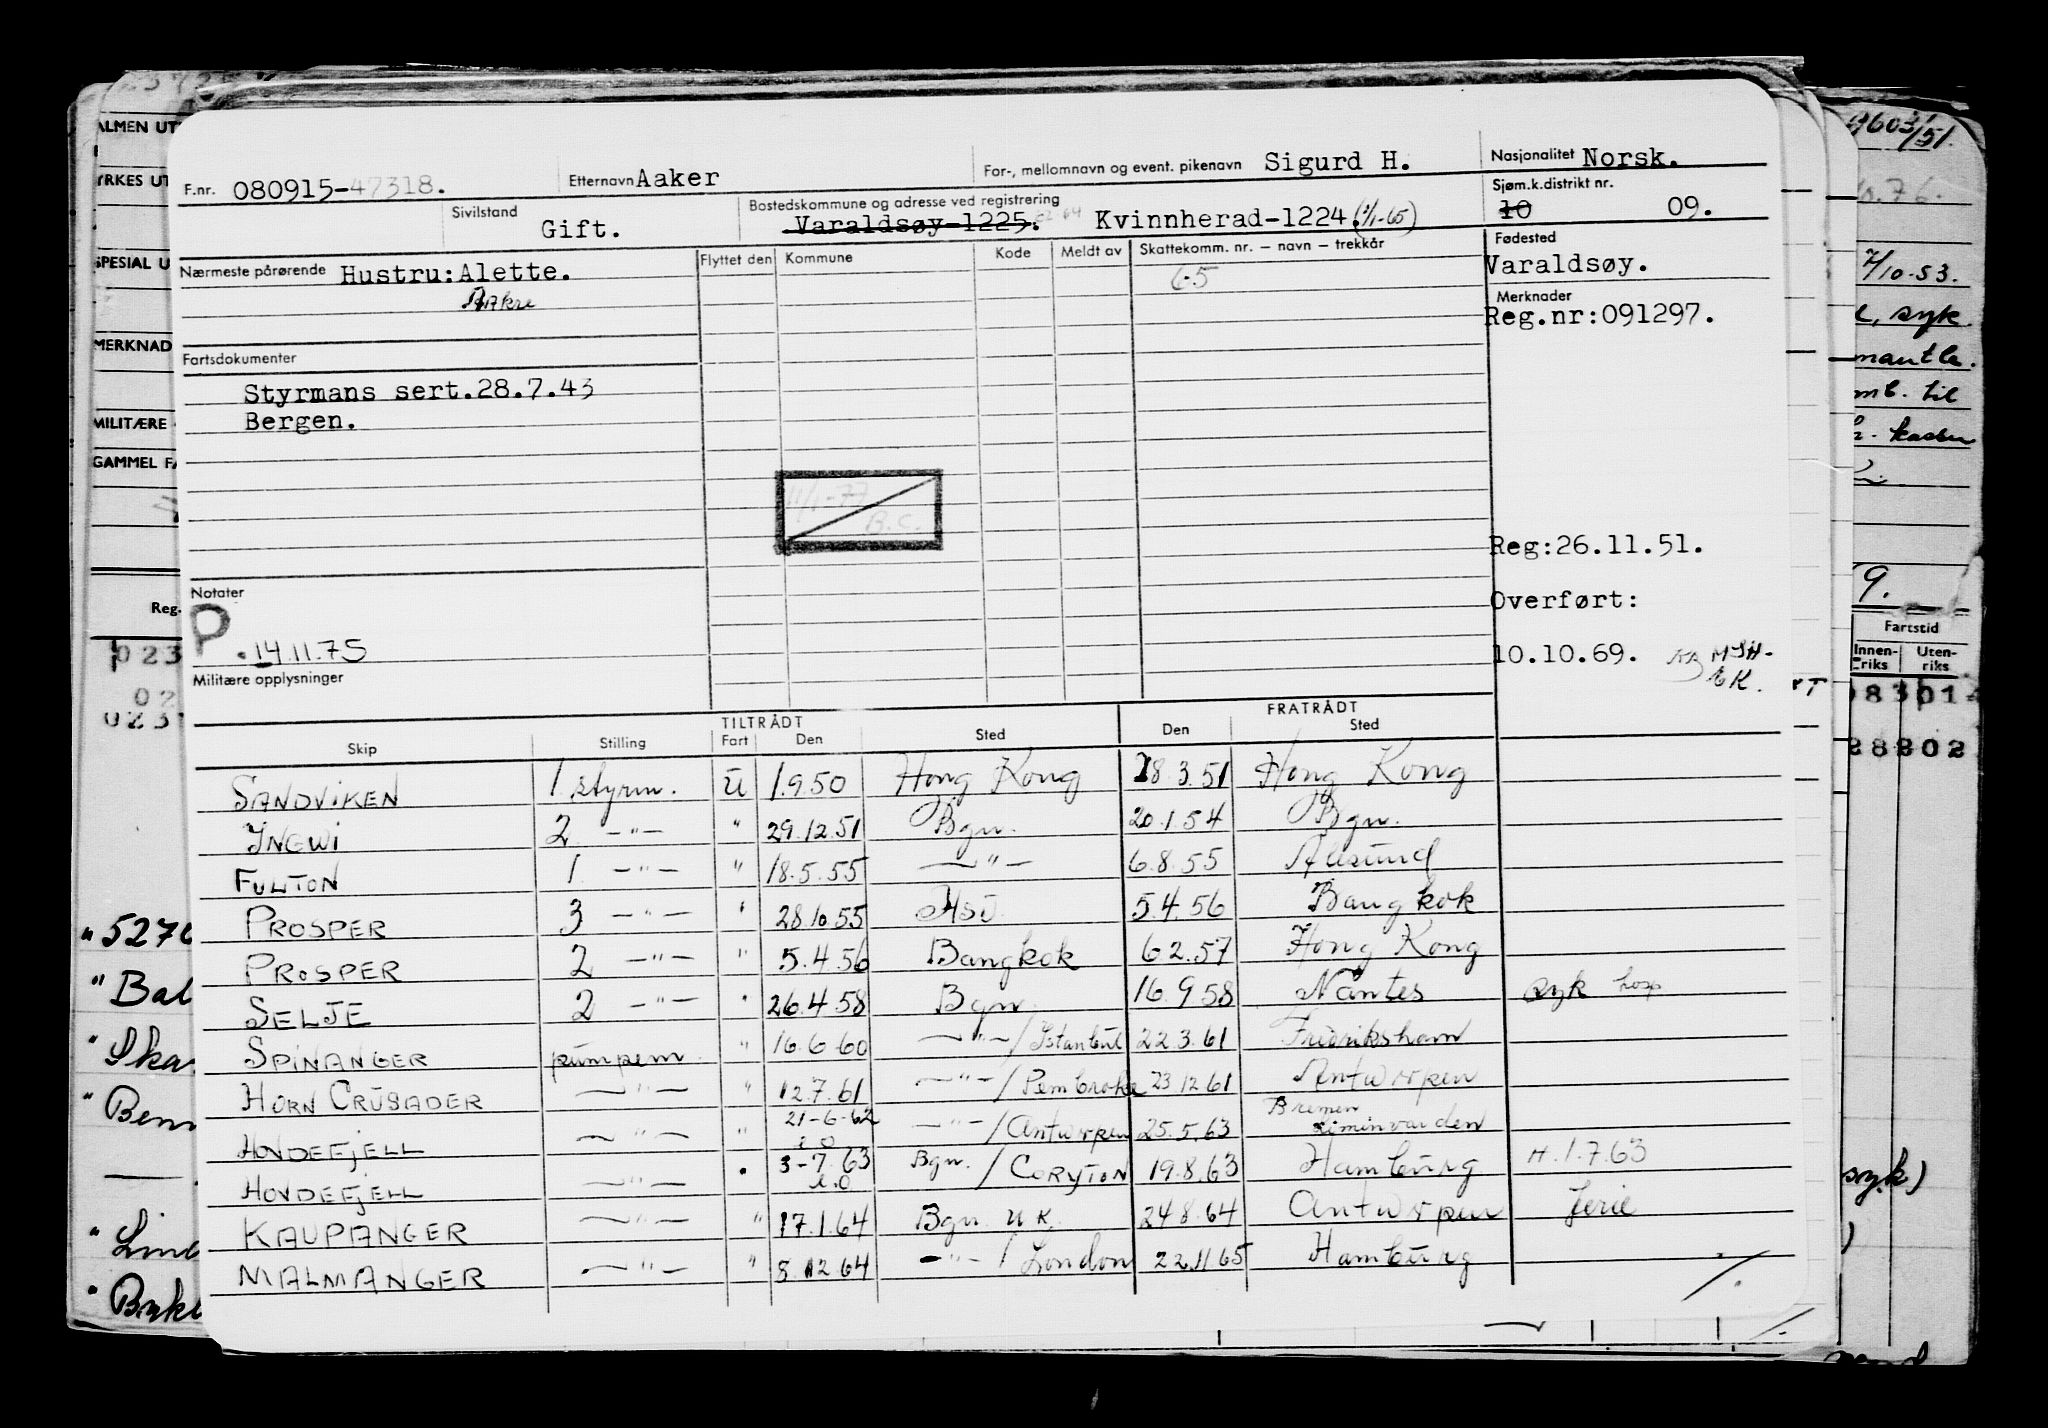 F.nr. 080915-47318. Etternavn Aaker For-, mellomnavn og event. pikenavn Sigurd H. Nasjonalitet Norsk.
Sivilstand Gift. Bostedskommune og adresse ved registrering Varaldsøy-1225. Kvinnherad-1224. (1/1-65) Sjøm.k.distrikt nr. 10 09.
Nærmeste pårørende Hustru: Alette. Flyttet den Kommune Kode Meldt av Skattekomm. nr. – navn – trekkår Fødested
65 Varaldsøy.
Merknader
Reg.nr:091297.
Fartsdokumenter
Styrmans sert.28.7.43
Bergen.
11/1-77
B.C.
Reg:26.11.51.
Notater Overført:
P. 14.11.75 10.10.69.
Militære opplysninger
TILTRÅDT FRATRÅDT
Skip Stilling Fart Den Sted Den Sted
SANDVIKEN 1 styrm. U 1.9.50 Hong Kong 28.3.51 Hong Kong
INGWI 2 —"— " 29.12.51 Bgn. 20.1.54 Bgn.
FULTON 1 —"— " 18.5.55 —"— 6.8.55 Ålesund
PROSPER 3 —"— " 28.10.55 5.4.56 Bangkok
PROSPER 2 —"— " 5.4.56 Bangkok 6.2.57 Hong Kong
SELJE 2 —"— " 26.4.58 Bgn. 16.9.58 Nantes syk hosp
SPINANGER pumpem. " 16.6.60 —"—/Istanbul 22.3.61 Fredriksham
HORN CRUSADER —"— " 12.7.61 —"—/Pembroke 23.12.61 Antwerpen
HOVDEFJELL —"— " 21-6-62 —"—/Antwerpen 25.5.63 Bremen
HOVDEFJELL —"— " 3-7.63 Bgn./CORYTON 19.8.63 Hamburg H.1.7.63
KAUPANGER —"— " 17.1.64 Bgn. U K. 24.8.64 Antwerpen ferie
MALMANGER —"— " 8.12.64 —"—/London 22.11.65 Hamburg
ALMEN UT
YRKES UT
SPESIAL U
MERKNAD
MILITÆRE
GAMMEL FA
Reg.
023
02
023
" 5270
" Bal
" Ska
" Ben
" Lin
9603/51.
10.76.
7/10-53.
syk.
til
9.
Fartstid
Innen-riks Uten-riks
083014
28802
syk)